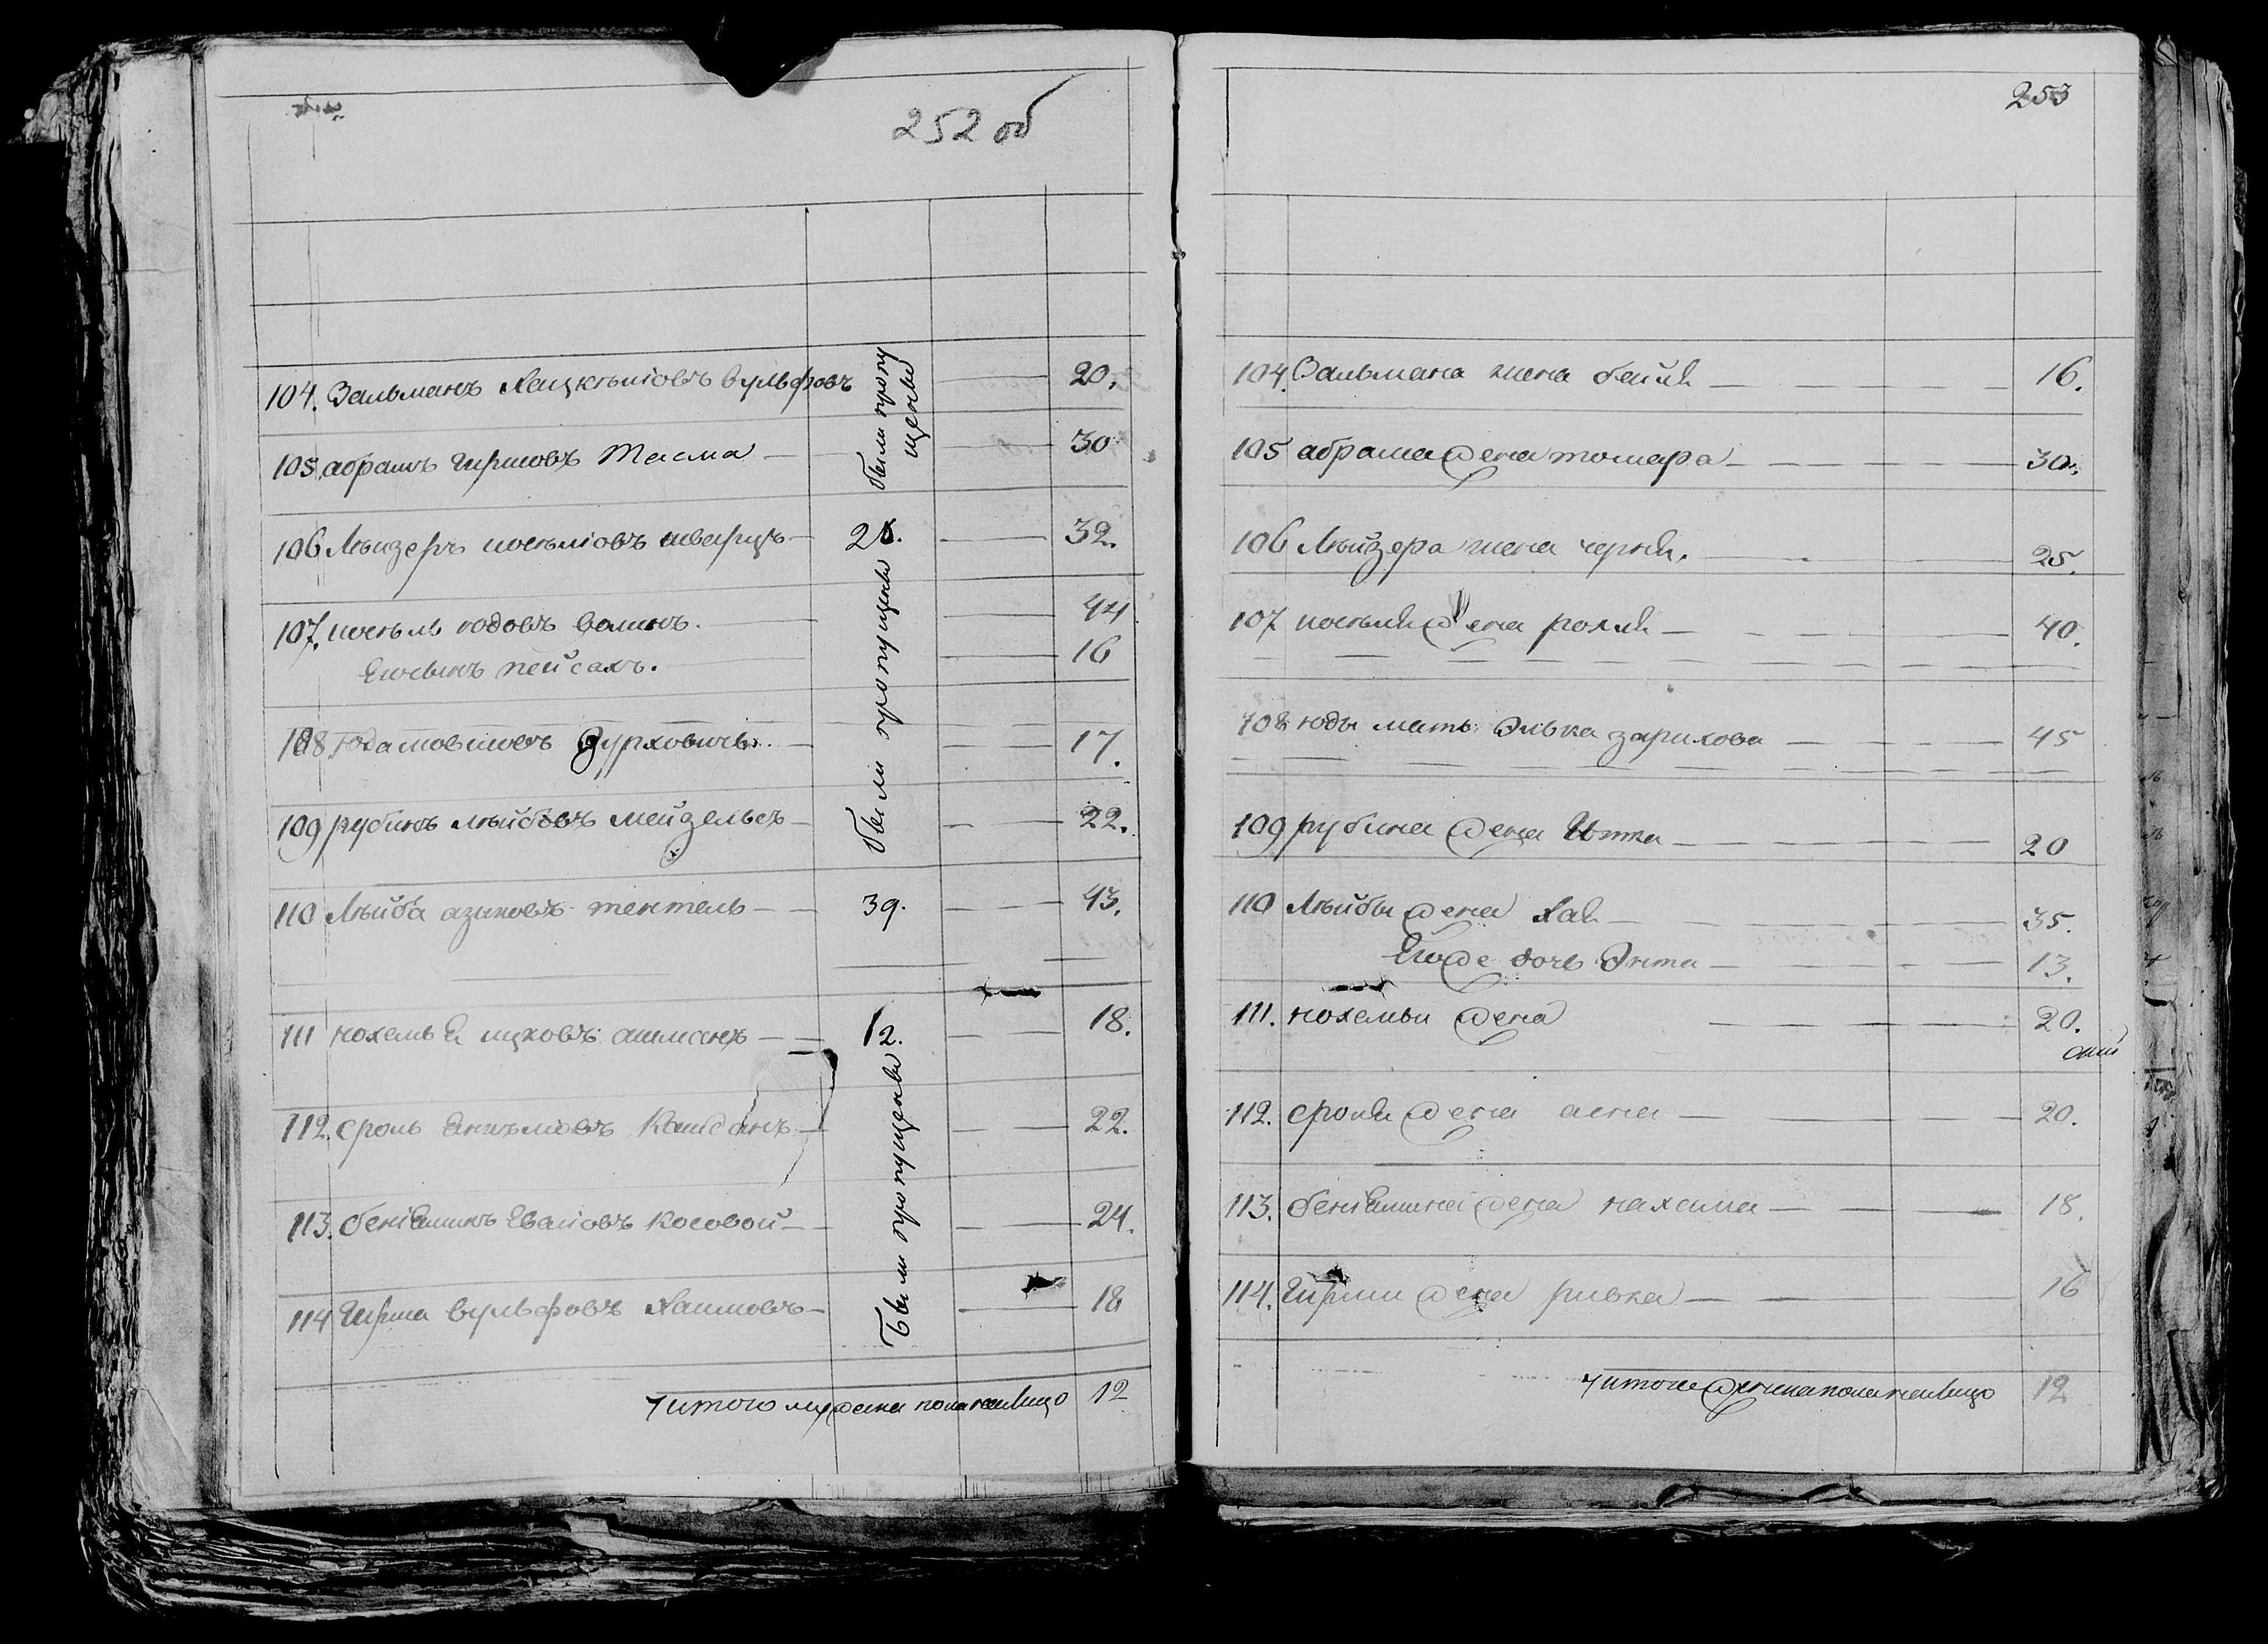 252 об
104. Зальманъ Хацкелiовъ вульфовъ 20.
были пропущены
105. абрамъ гиршовъ Тасма 30
106 Лейзеръ иоселiовъ шварцъ 28. 32.
107. иосель юдовъ волинъ. 44
Его сынъ пейсахъ. 16
были пропущены
108 юда мовшовъ Зурховичъ. 17.
109 рубинъ лейбовъ мейзельсъ 22.
110 Лейба азиковъ тентель 39. 43.
111 нохемъ ицковъ ашманъ 12. 18.
112. сроль Анкелiовъ Кашданъ 22.
были пропущены
113. бенiаминъ Евалiовъ Косовой 24.
114 Гирша вульфовъ Хаимовъ 18
итого мужеска пола налицо 12
253
104. Залмана жена бейля 16.
105 абрама жена томара 30.
106 Лейзера жена черня. 25.
107 иоселя жена рохля 40.
108 юды мать Элька зарихова 45
109 рубина жена Итка 20
110 Лейбы жена Хая 35.
Его же дочь Энта 13.
111. нохемы жена 20.
112. сроля жена 20.
113. бенiамина жена нахама 18.
114. Гирши жена ривка 16
итого женска пола налицо 12